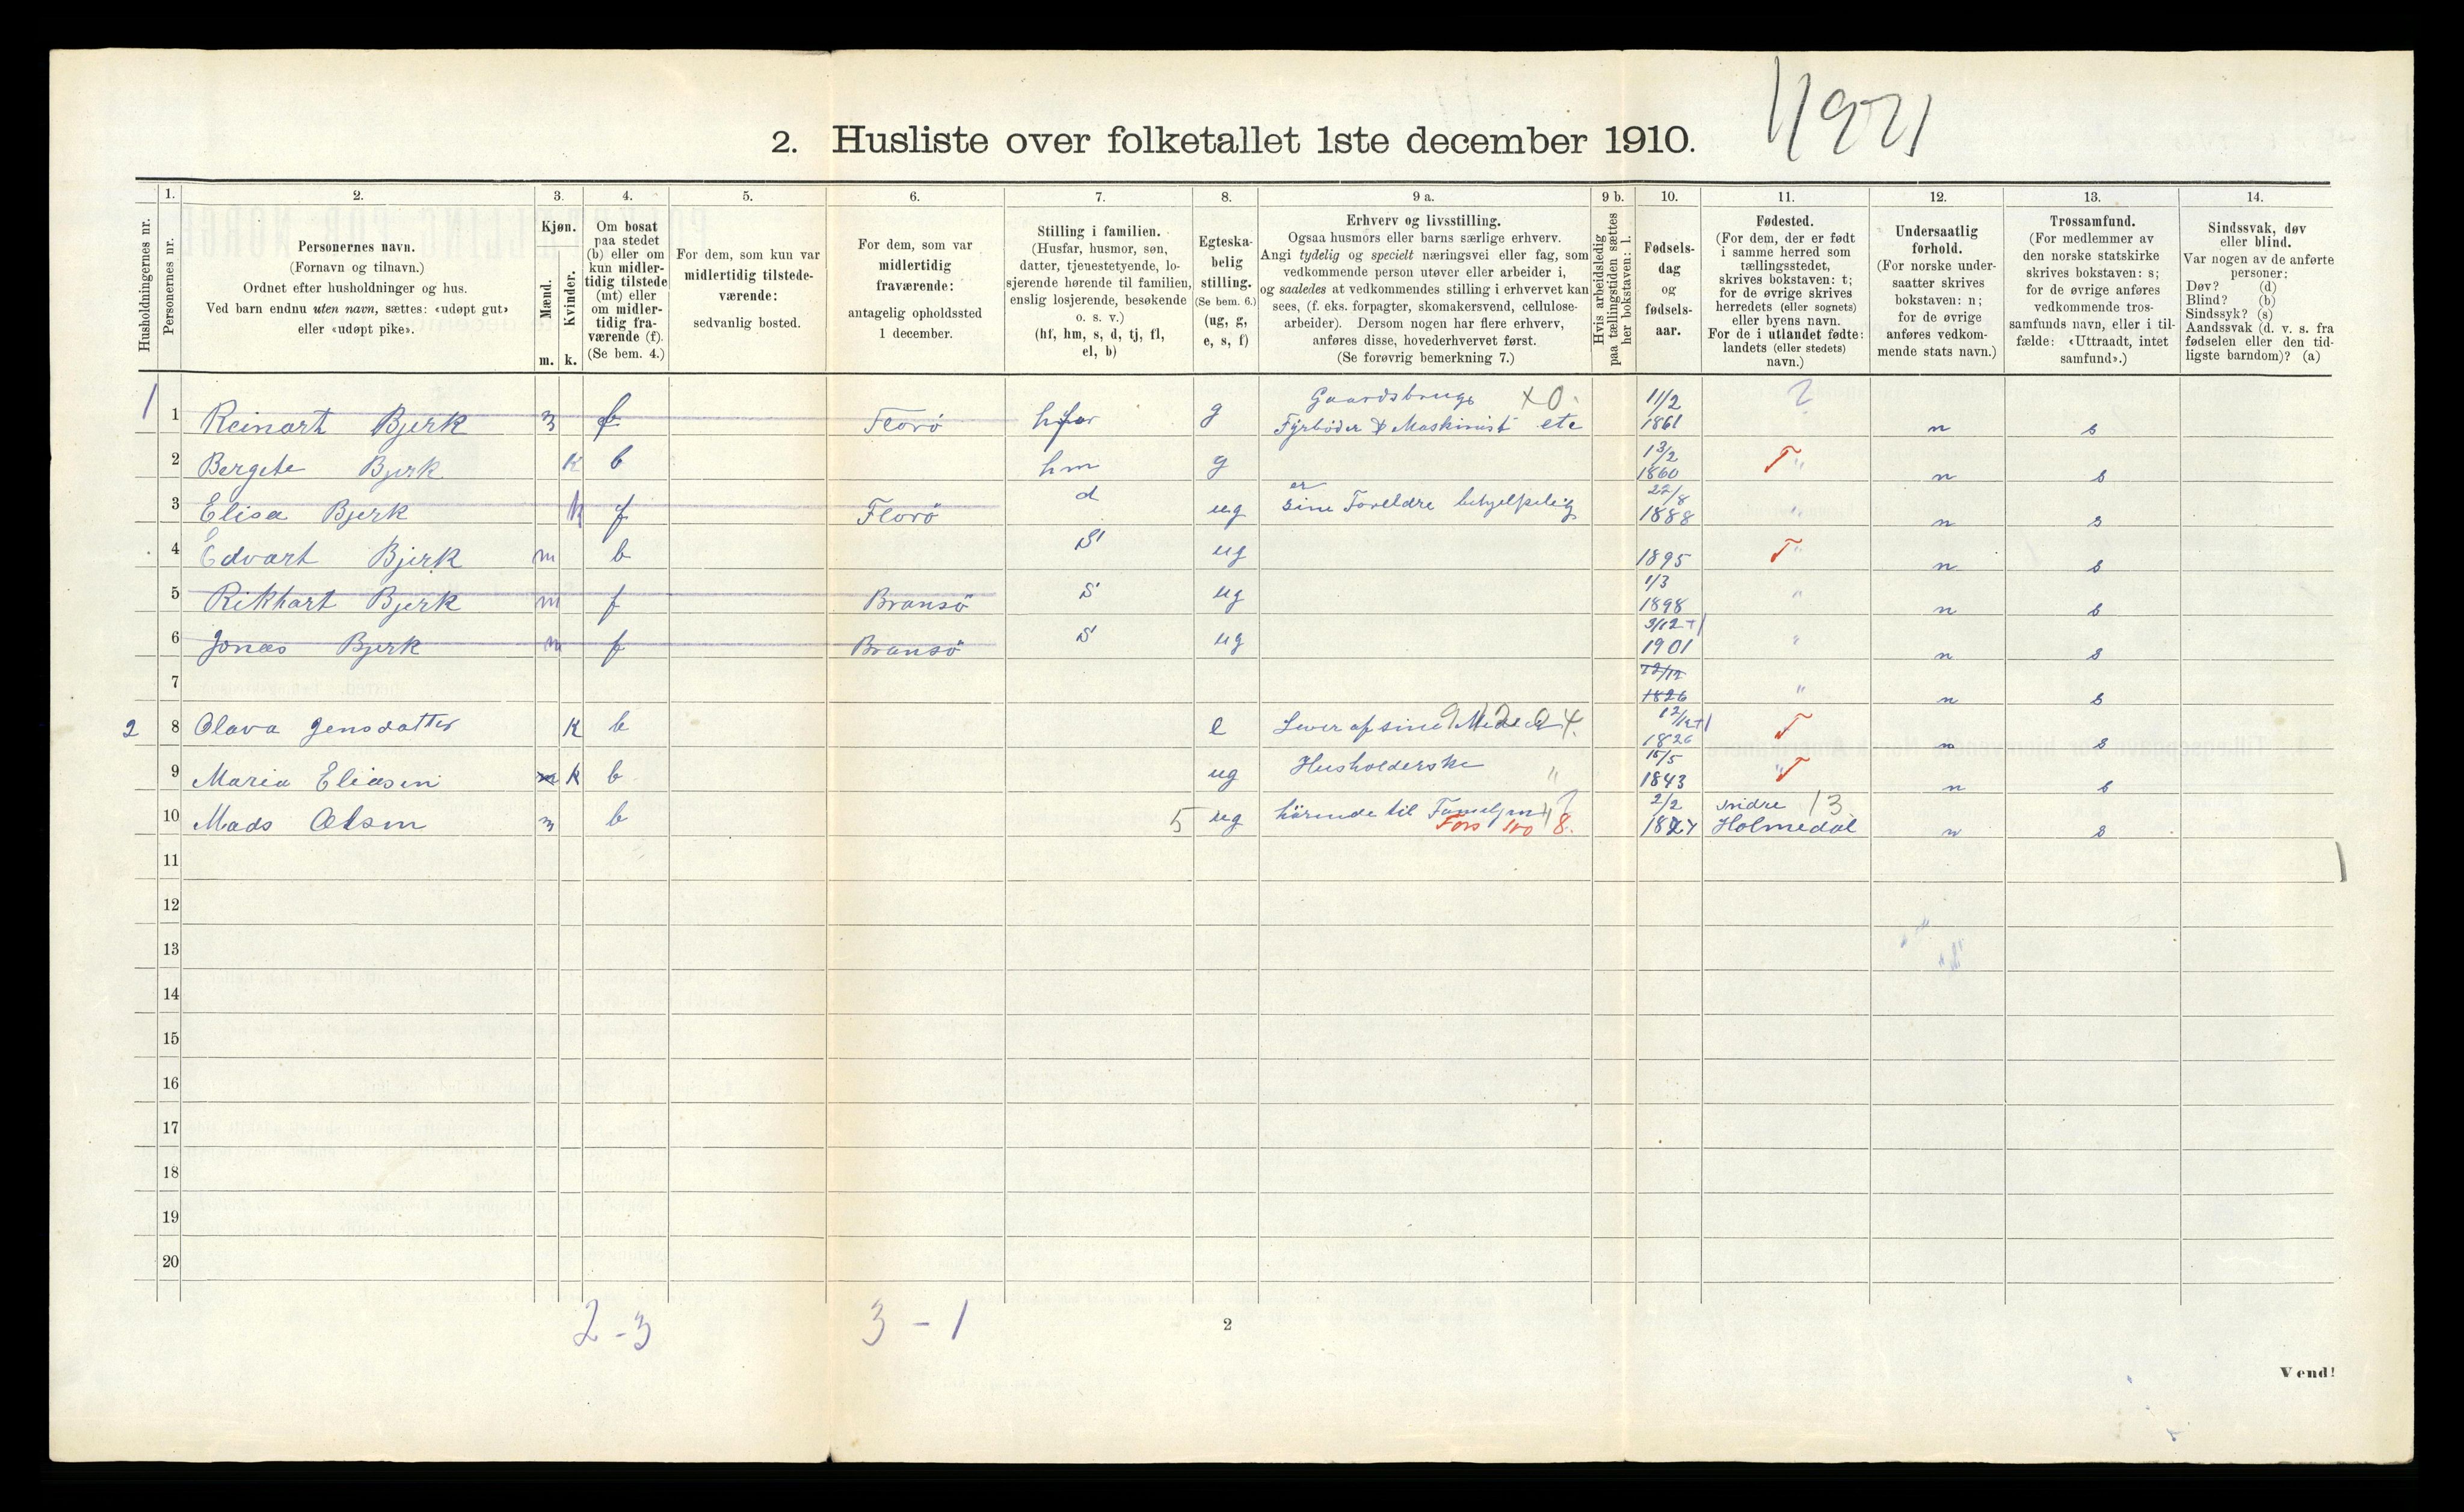 2. Husliste over folketallet 1ste december 1910.
Husholdningernes nr.
1.
Personernes nr.
2.
Personernes navn.
(Fornavn og tilnavn.)
Ordnet efter husholdninger og hus.
Ved barn endnu uten navn, sættes: «udøpt gut»
eller «udøpt pike».
3.
Kjøn.
Mænd.
Kvinder.
m. k.
4.
Om bosat
paa stedet
(b) eller om
kun midler-
tidig tilstede
(mt) eller
om midler-
tidig fra-
værende (f).
(Se bem. 4.)
5.
For dem, som kun var
midlertidig tilstede-
værende:
sedvanlig bosted.
6.
For dem, som var
midlertidig
fraværende:
antagelig opholdssted
1 december.
7.
Stilling i familien.
(Husfar, husmor, søn,
datter, tjenestetyende, lo-
sjerende hørende til familien,
enslig losjerende, besøkende
o. s. v.)
(hf, hm, s, d, tj, fl,
el, b)
8.
Egteska-
belig
stilling.
(Se bem. 6.)
(ug, g,
e, s, f)
9 a.
Erhverv og livsstilling.
Ogsaa husmors eller barns særlige erhverv.
Angi tydelig og specielt næringsvei eller fag, som
vedkommende person utøver eller arbeider i,
og saaledes at vedkommendes stilling i erhvervet kan
sees, (f. eks. forpagter, skomakersvend, cellulose-
arbeider). Dersom nogen har flere erhverv,
anføres disse, hovederhvervet først.
(Se forøvrig bemerkning 7.)
9 b.
Hvis arbeidsledig
paa tællingstiden sættes
her bokstaven: l.
10.
Fødsels-
dag
og
fødsels-
aar.
11.
Fødested.
(For dem, der er født
i samme herred som
tællingsstedet,
skrives bokstaven: t;
for de øvrige skrives
herredets (eller sognets)
eller byens navn.
For de i utlandet fødte:
landets (eller stedets)
navn.)
12.
Undersaatlig
forhold.
(For norske under-
saatter skrives
bokstaven: n;
for de øvrige
anføres vedkom-
mende stats navn.)
13.
Trossamfund.
(For medlemmer av
den norske statskirke
skrives bokstaven: s;
for de øvrige anføres
vedkommende tros-
samfunds navn, eller i til-
fælde: «Uttraadt, intet
samfund».)
14.
Sindssvak, døv
eller blind.
Var nogen av de anførte
personer:
Døv? (d)
Blind? (b)
Sindssyk? (s)
Aandssvak (d. v. s. fra
fødselen eller den tid-
ligste barndom)? (a)
1 1 Reinart Bjerk m f Florö hfar g Gaardsbrug x0. Fyrbøder & Maskinist etc 11/2 1861 ? n s
2 Bergete Bjerk k b hm g 13/2 1860 T " n s
3 Elisa Bjerk k f Florö d ug er sine Foreldre behjelpelig 22/8 1888 " n s
4 Edvart Bjerk m b S ug 1895 T " n s
5 Rikhart Bjerk m f Bransö S ug 1/3 1898 " n s
6 Jonas Bjerk m f Bransö S ug 3/12 1901 " n s
7 22/12 1826 " n s
2 8 Olava Jensdatter k b e Lever af sine Midler 12/12 1826 T n s
9 Maria Eliasen m k b ug Husholderske " 15/5 1843 " T n s
10 Mads Olsen m b 5 ug hörende til Familjen Fors 8. 2/2 1827 indre 13 Holmedal n s
11
12
13
14
15
16
17
18
19
20
2-3 3-1
2
Vend!